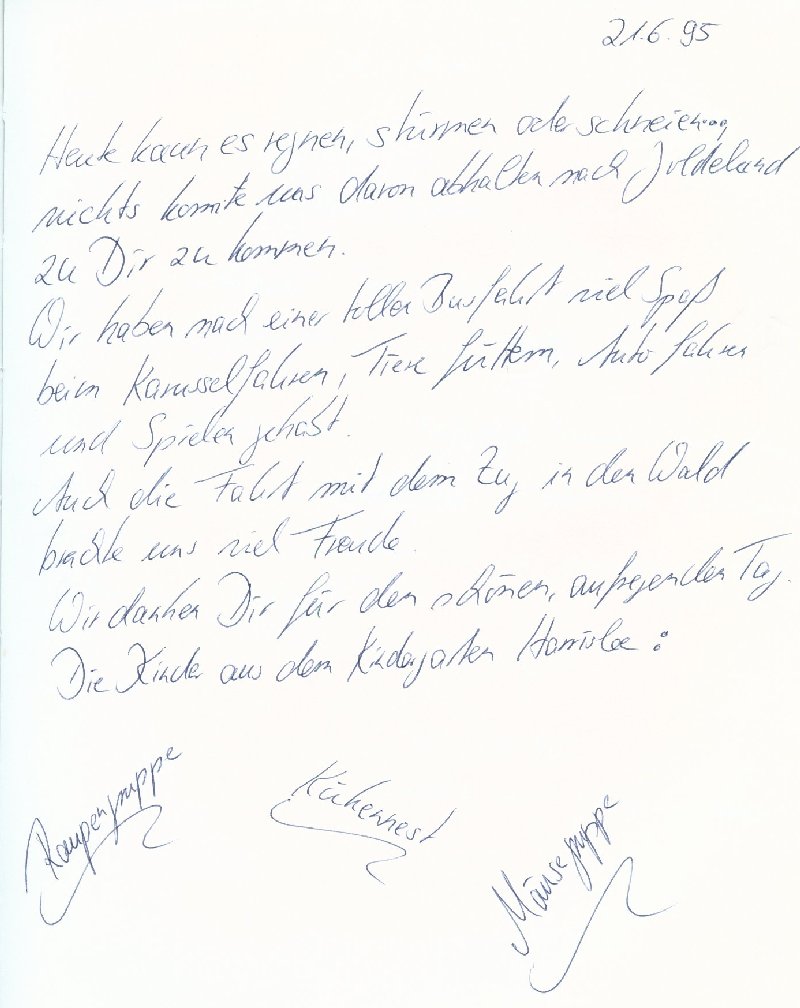 21.6.95
Heute kann es regnen, stürmen oder schneien...,
nichts konnte uns davon abhalten nach Joldelund
zu Dir zu kommen.
Wir haben nach einer tollen Busfahrt viel Spaß
beim Karusselfahren, Tiere füttern, Auto fahren
und Spielen gehabt.
Auch die Fahrt mit dem Zug in den Wald
brachte uns viel Freude.
Wir danken Dir für den schönen, aufregenden Tag.
Die Kinder aus dem Kindergarten Harrislee:
Raupengruppe
Kükennest
Mäusegruppe